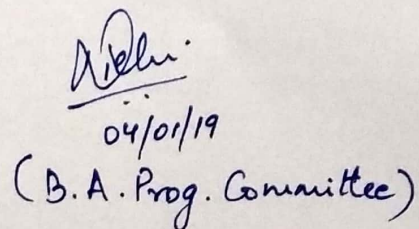 04/01/19
(B.A. Prog. Committee)